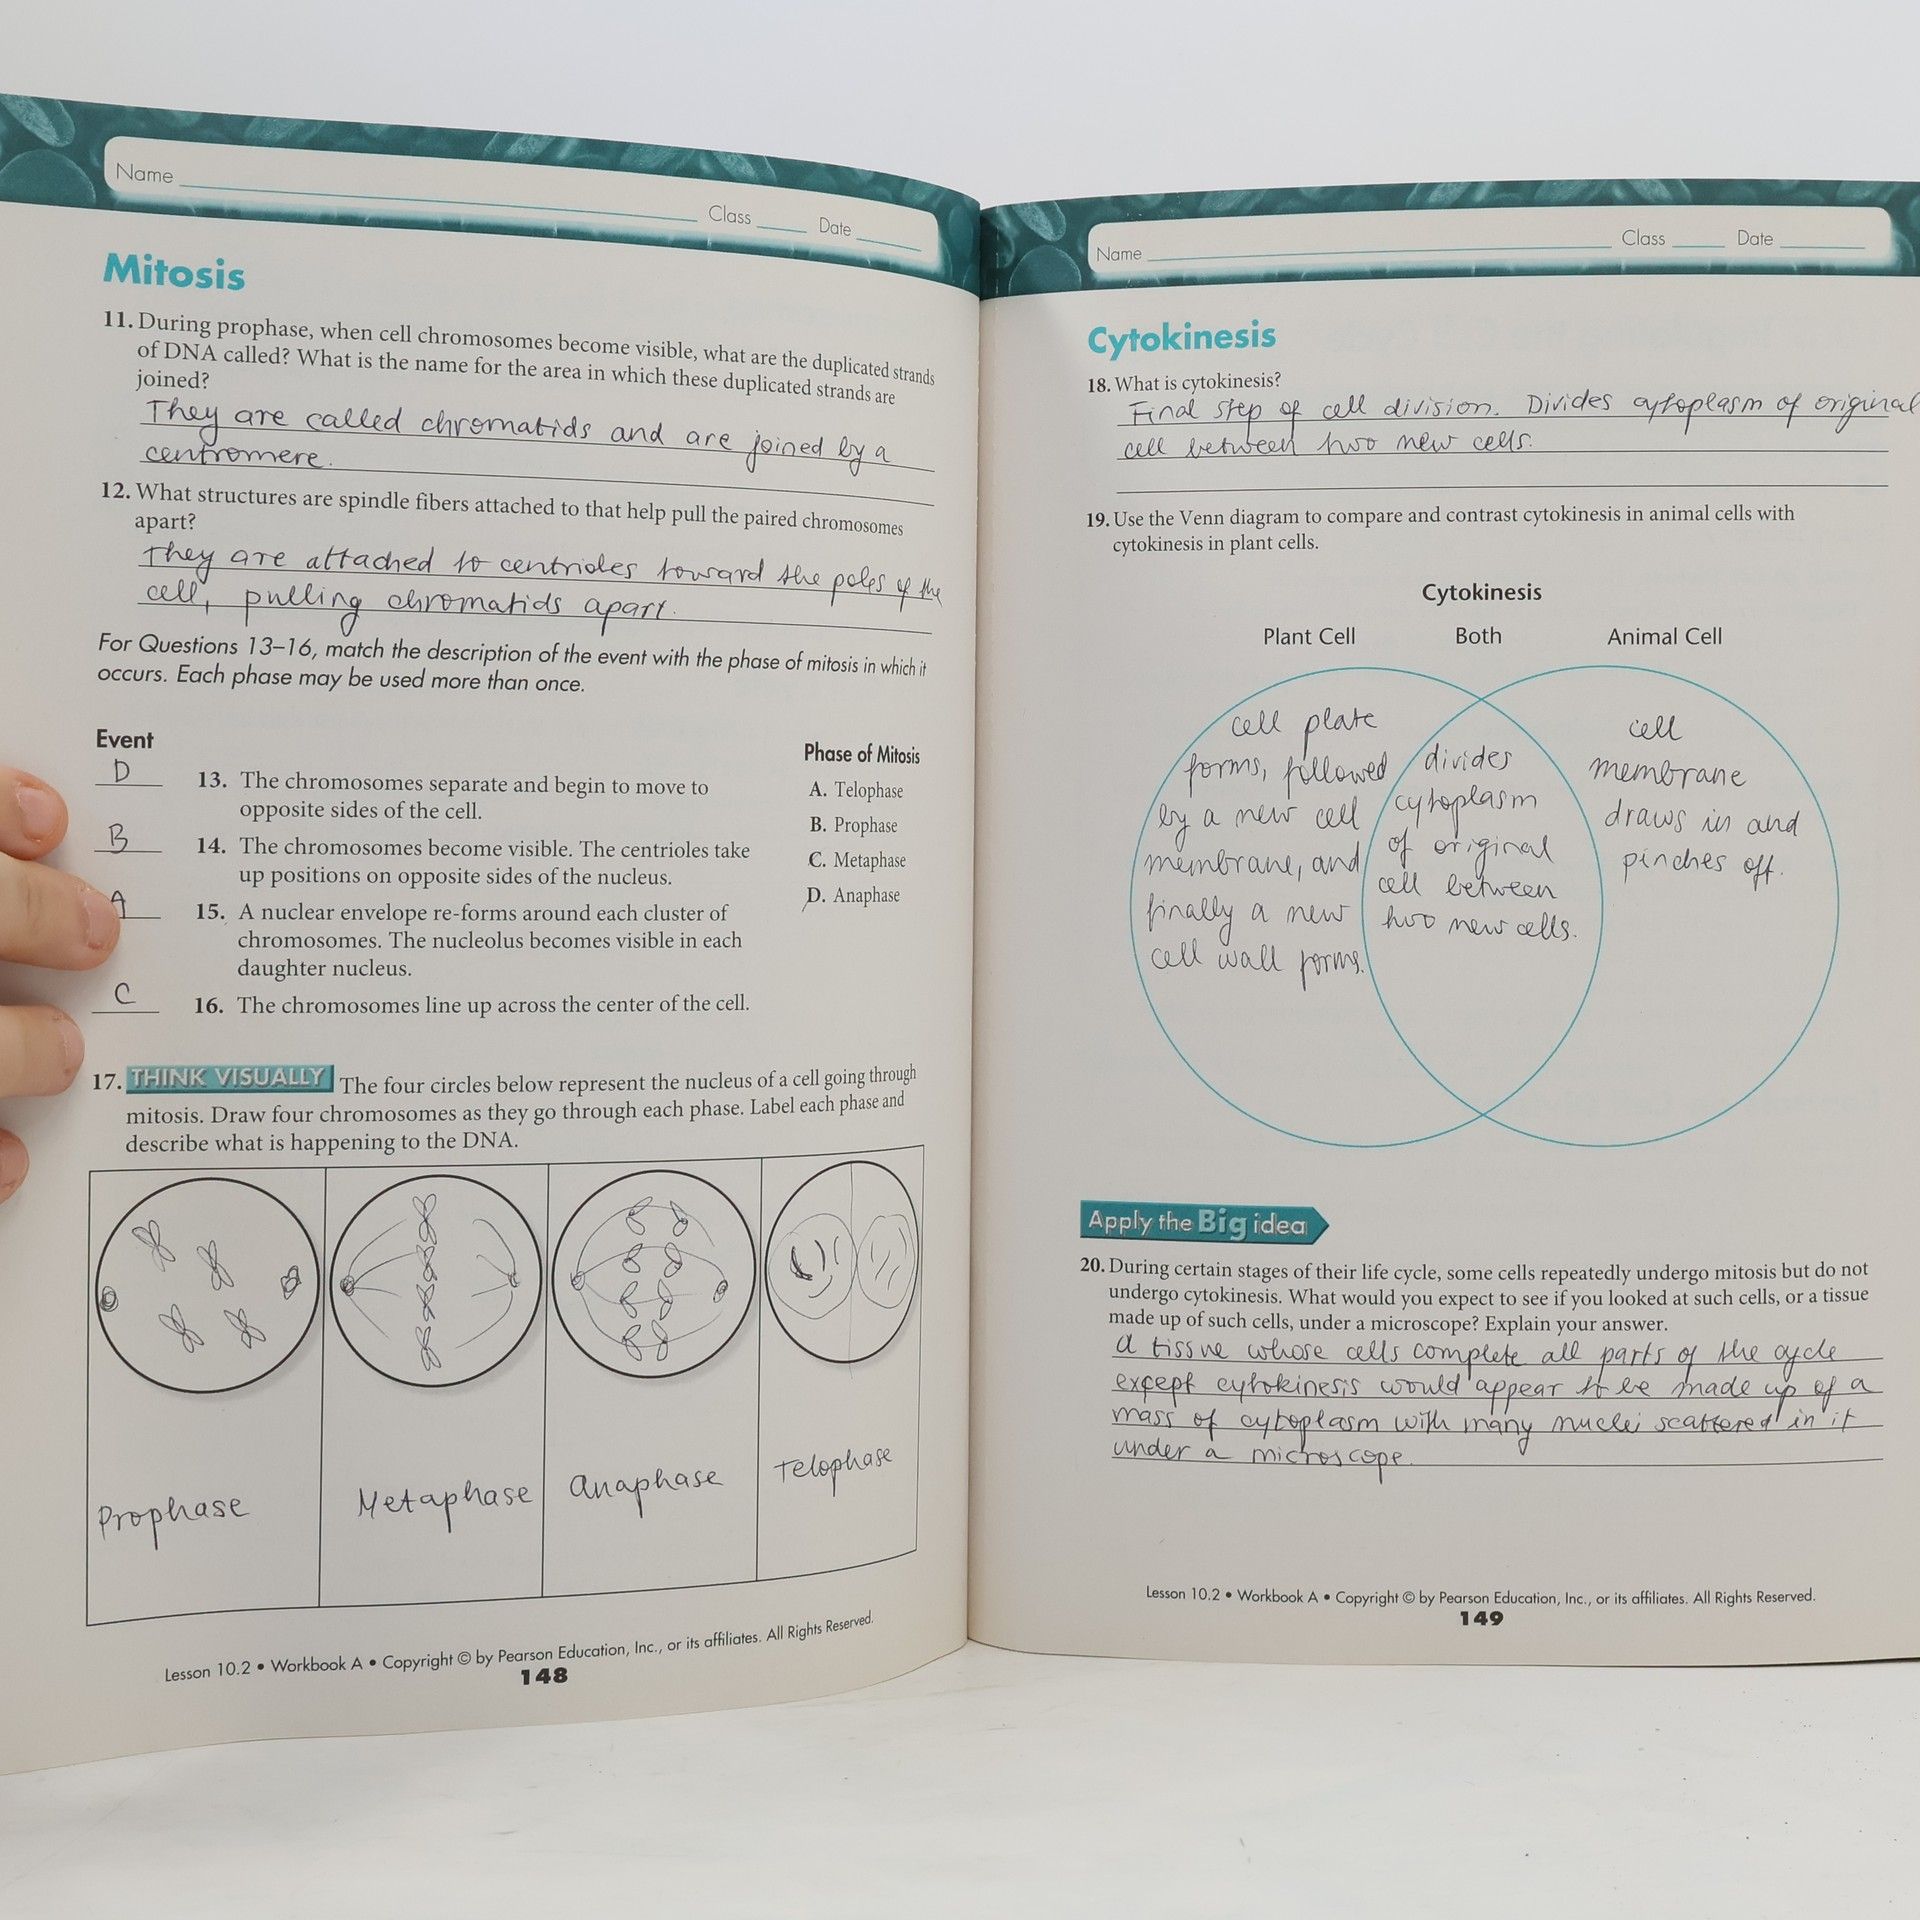 Name
Class
Date
Mitosis
11. During prophase, when cell chromosomes become visible, what are the duplicated strands
of DNA called? What is the name for the area in which these duplicated strands are
joined?
They are called chromatids and are joined by a
centromere.
12. What structures are spindle fibers attached to that help pull the paired chromosomes
apart?
They are attached to centrioles toward the poles of the
cell, pulling chromatids apart.
For Questions 13–16, match the description of the event with the phase of mitosis in which it
occurs. Each phase may be used more than once.
Event
Phase of Mitosis
D 13. The chromosomes separate and begin to move to
opposite sides of the cell.
B 14. The chromosomes become visible. The centrioles take
up positions on opposite sides of the nucleus.
A 15. A nuclear envelope re-forms around each cluster of
chromosomes. The nucleolus becomes visible in each
daughter nucleus.
C 16. The chromosomes line up across the center of the cell.
A. Telophase
B. Prophase
C. Metaphase
D. Anaphase
17. THINK VISUALLY The four circles below represent the nucleus of a cell going through
mitosis. Draw four chromosomes as they go through each phase. Label each phase and
describe what is happening to the DNA.
Prophase
Metaphase
Anaphase
Telophase
Lesson 10.2 • Workbook A • Copyright © by Pearson Education, Inc., or its affiliates. All Rights Reserved.
148
Name
Class
Date
Cytokinesis
18. What is cytokinesis?
Final step of cell division. Divides cytoplasm of original
cell between two new cells.
19. Use the Venn diagram to compare and contrast cytokinesis in animal cells with
cytokinesis in plant cells.
Cytokinesis
Plant Cell
Both
Animal Cell
cell plate
forms, followed
by a new cell
membrane, and
finally a new
cell wall forms.
divides
cytoplasm
of original
cell between
two new cells.
cell
membrane
draws in and
pinches off.
Apply the Big idea
20. During certain stages of their life cycle, some cells repeatedly undergo mitosis but do not
undergo cytokinesis. What would you expect to see if you looked at such cells, or a tissue
made up of such cells, under a microscope? Explain your answer.
A tissue whose cells complete all parts of the cycle
except cytokinesis would appear to be made up of a
mass of cytoplasm with many nuclei scattered in it
under a microscope.
Lesson 10.2 • Workbook A • Copyright © by Pearson Education, Inc., or its affiliates. All Rights Reserved.
149